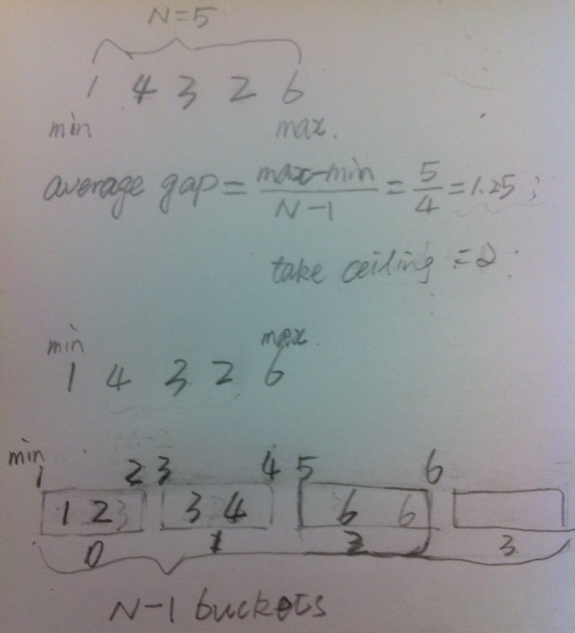 N=5
1 4 3 2 6
min max.
average gap = max-min / N-1 = 5/4 = 1.25;
take ceiling = 2
min max.
1 4 3 2 6
min
1 2 3 4 5 6
1 2 3 3 4 6 6
0 1 2 3
N-1 buckets